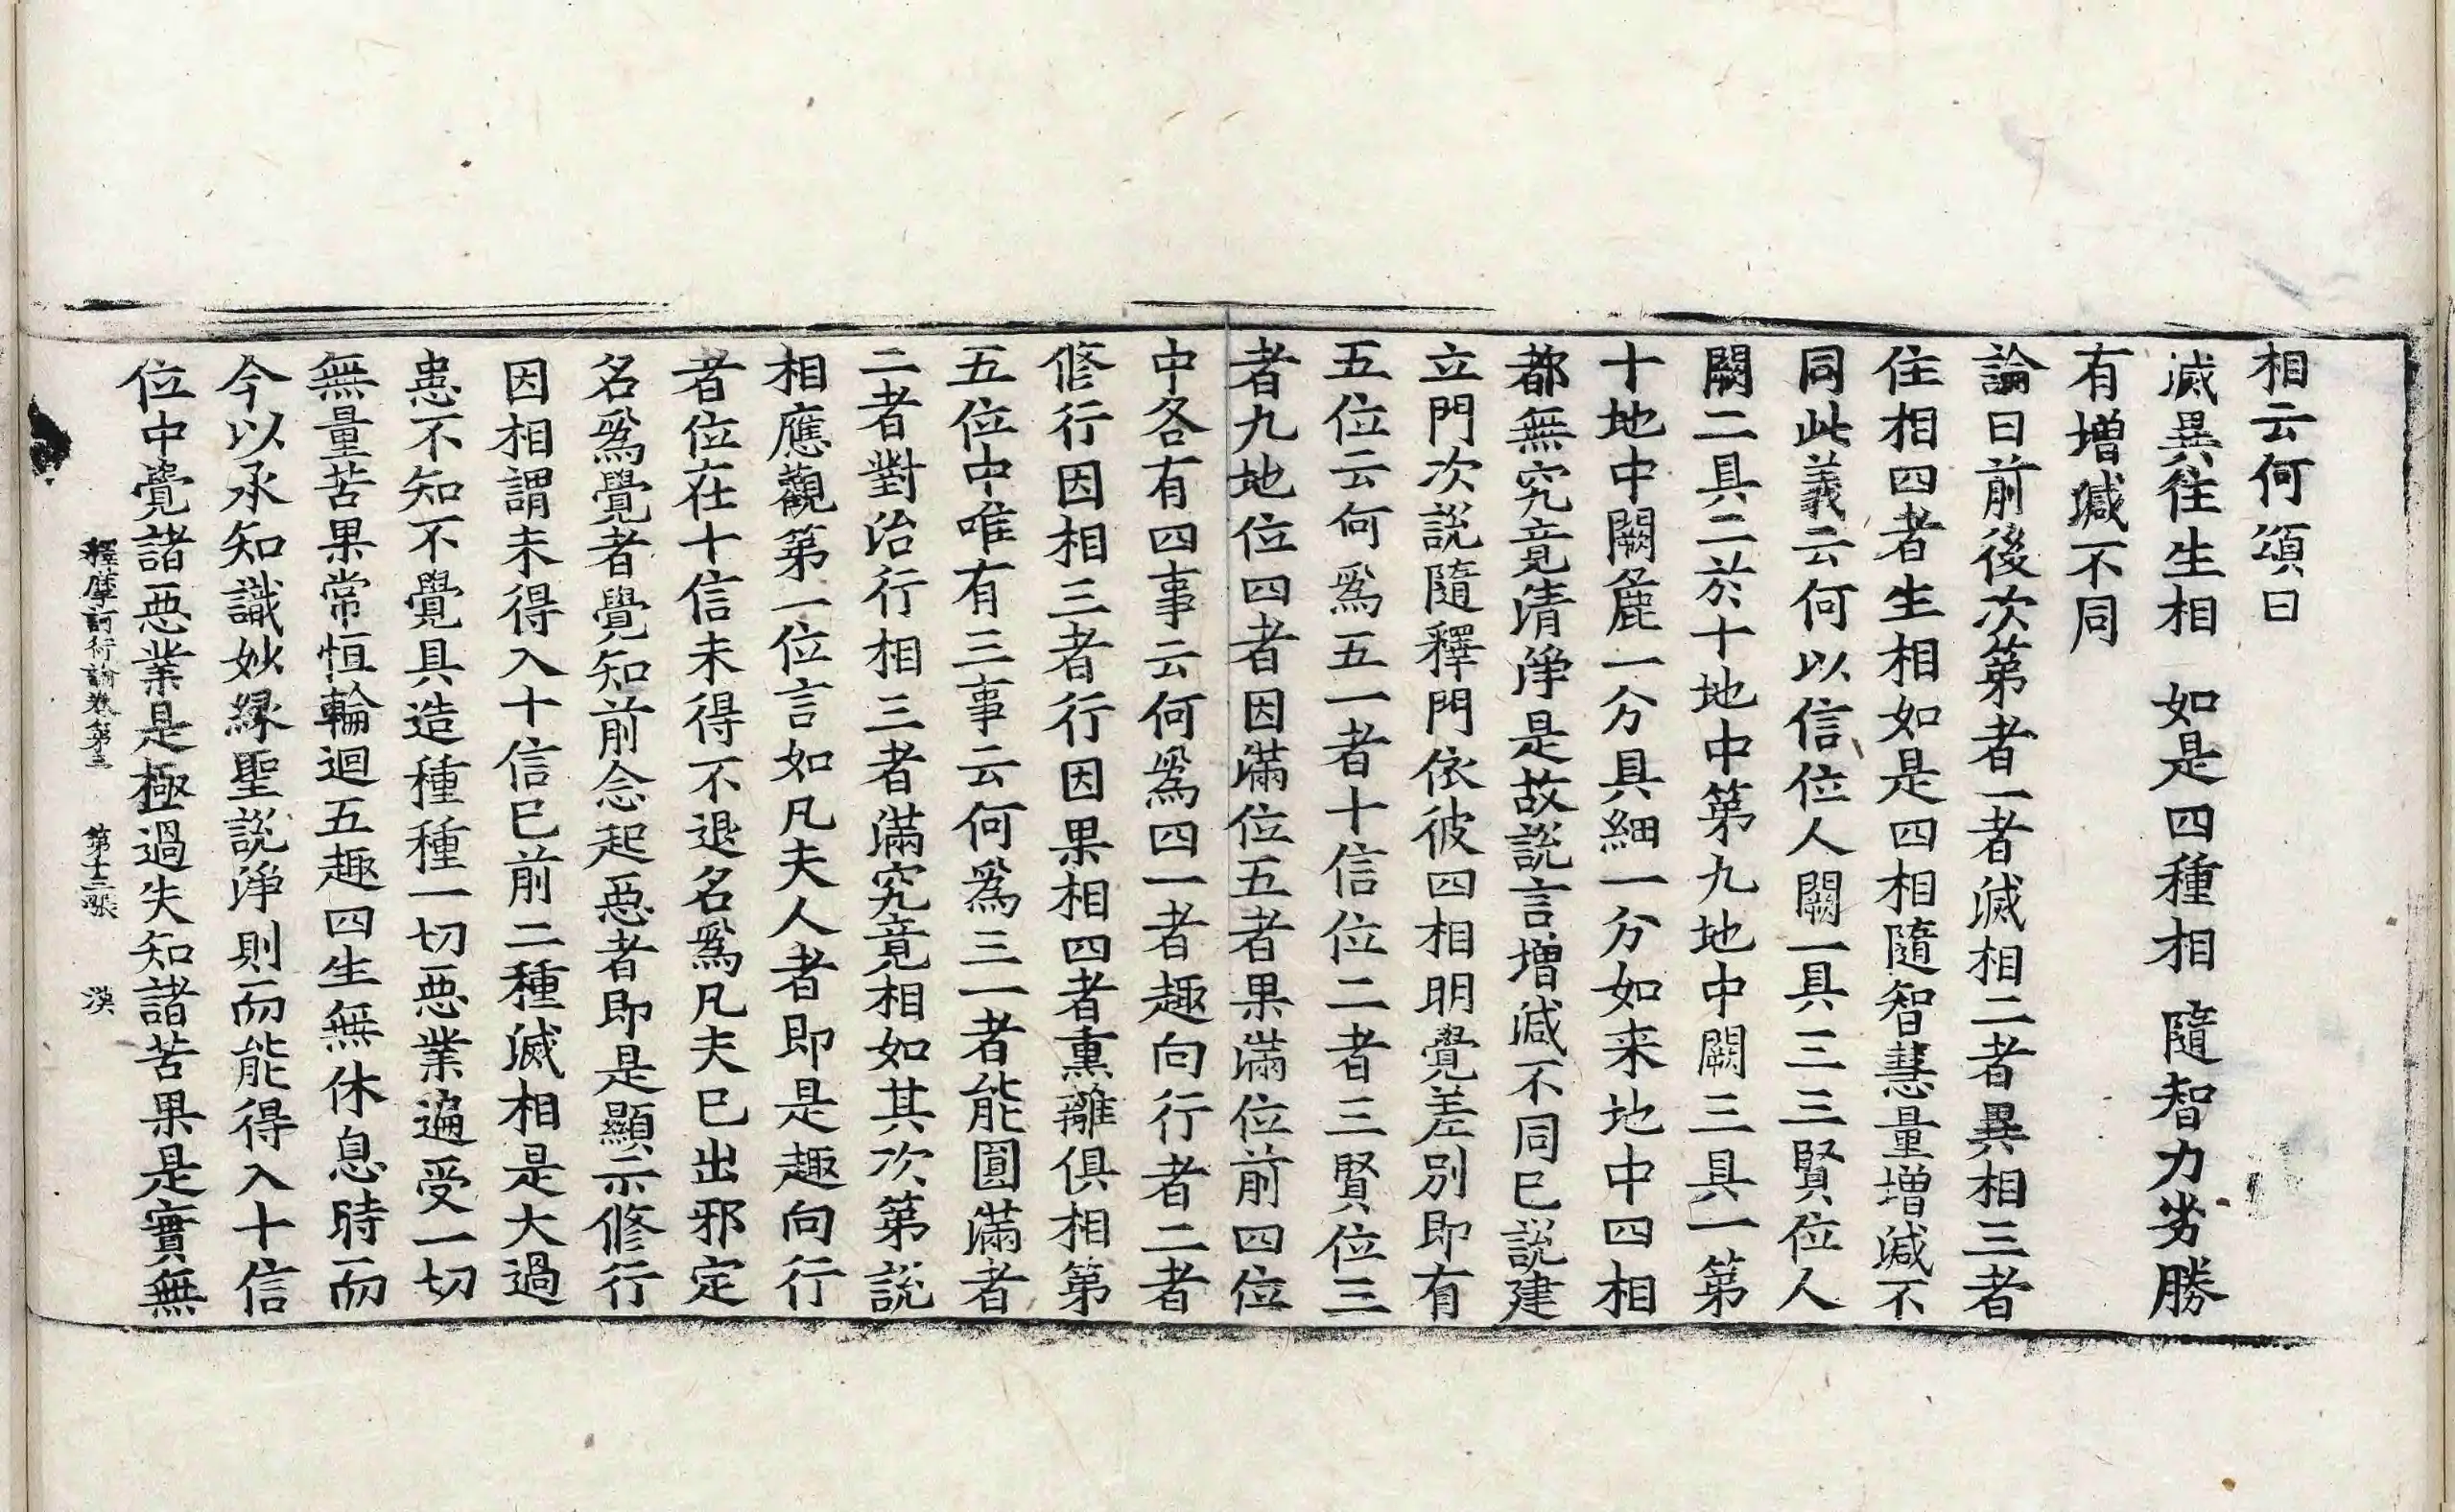 相云何頌曰
滅異住生相　如是四種相　隨智力劣勝
有增減不同
論曰前後次第者一者滅相二者異相三者
住相四者生相如是四相隨智慧量增減不
同此義云何以信位人闕一具三三賢位人
闕二具二於十地中第九地中闕三具一第
十地中闕麁一分具細一分如来地中四相
都無究竟清淨是故說言增減不同已說建
立門次說隨釋門依彼四相明覺差別即有
五位云何爲五一者十信位二者三賢位三
者九地位四者因滿位五者果滿位前四位
中各有四事云何爲四一者趣向行者二者
修行因相三者行因果相四者熏離俱相第
五位中唯有三事云何爲三一者能圓滿者
二者對治行相三者滿究竟相如其次第說
相應觀第一位言如凡夫人者即是趣向行
者位在十信未得不退名爲凡夫已出邪定
名爲覺者覺知前念起惡者即是顯示修行
因相謂未得入十信已前二種滅相是大過
患不知不覺具造種種一切惡業遍受一切
無量苦果常恒輪迴五趣四生無休息時而
今以承知識妙緣聖說淨則而能得入十信
位中覺諸惡業是極過失知諸苦果是實無
釋摩訶衍論卷第三　第十三張　漢